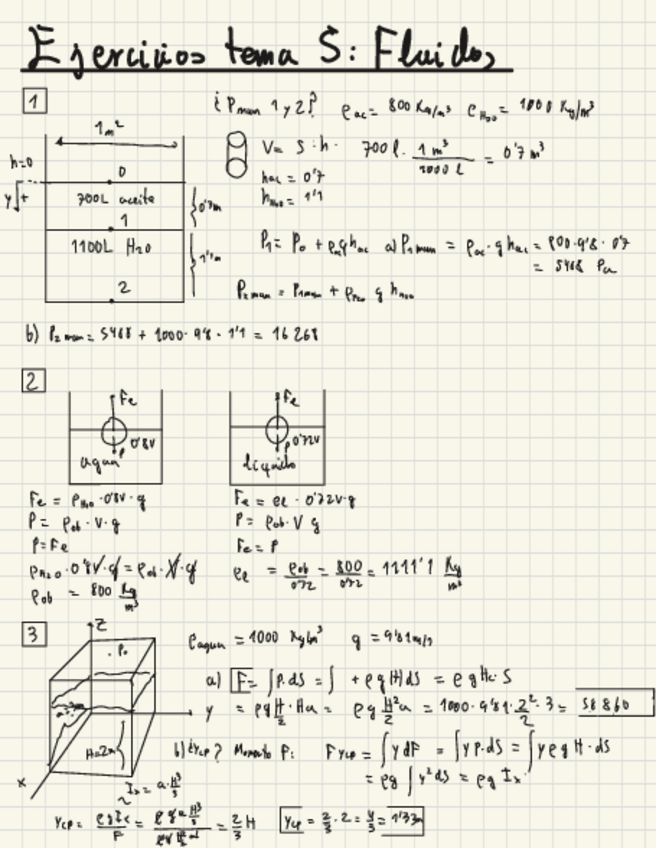 Ejercicios tema 5: Fluidos
1
¿ Pman 1 y 2? ρac = 800 Kg/m³ ρH₂O = 1000 Kg/m³
1m²
h=0
y +
0
700L aceite
0'7m
1
1100L H₂O
1'1m
2
V = S·h · 700 l. 1 m³ / 1000 l = 0'7 m³
hac = 0'7
hH₂O = 1'1
P₁ = P₀ + ρac g hac a) P₁man = ρac · g hac = 800·9'8·0'7
= 5488 Pa
P₂man = P₁man + ρH₂O g hH₂O
b) P₂man = 5488 + 1000·9'8·1'1 = 16268
2
Fe Fe
0'8V P 0'72V
agua P líquido
Fe = ρH₂O · 0'8V · g Fe = ρl · 0'72V·g
P = ρob · V · g P = ρob · V g
P=Fe Fe = P
ρH₂O · 0'8V·g = ρob · V · g ρl = ρob / 0'72 = 800 / 0'72 = 1111'1 Kg/m³
ρob = 800 Kg/m³
3
Z
P₀
ρagua = 1000 Kg/m³ g = 9'81m/s
a) F = ∫P.dS = ∫ + ρg(H)dS = ρg Hc · S
y = ρg H/2 · Ha = ρg H²a/2 = 1000·9'81·2²/2·3 = 58860
H=2m
b) ¿ycp? Momento F: F ycp = ∫y dF = ∫y P·dS = ∫y ρ g H · dS
= ρg ∫y² dS = ρg Ix
x
Ix = a·H³/3
ycp = ρgIx / F = ρg a H³/3 / ρg H²/2 a = 2/3 H ycp = 2/3 · 2 = 4/3 = 1'33m